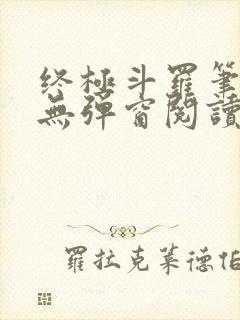 终極斗羅筆
無彈窗閱讀
羅拉克萊德伯